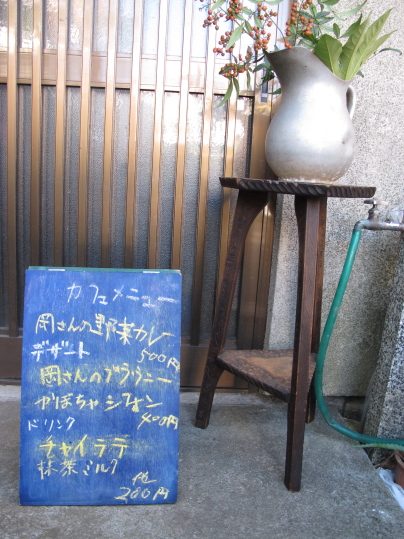 カフェメニュー
岡さんの野菜カレー
500円
デザート
岡さんのブラウニー
かぼちゃシフォン
400円
ドリンク
チャイラテ
抹茶ミルク
他
200円